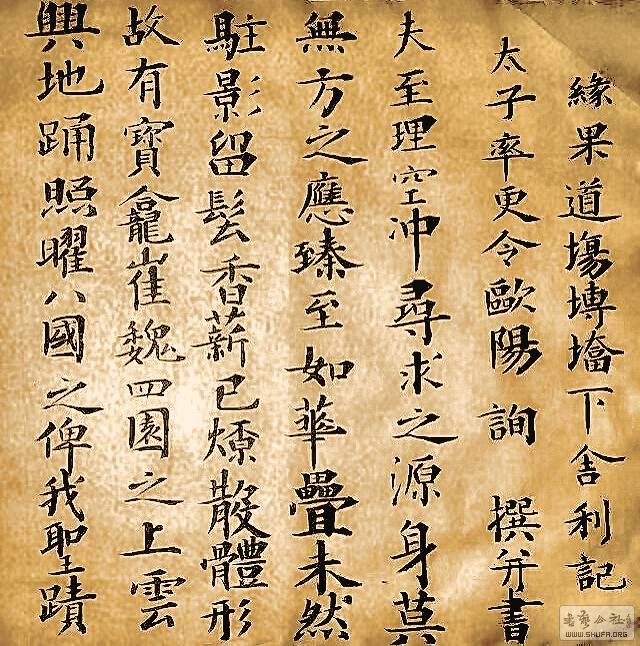 緣果道塲塼墖下舍利記
太子率更令歐陽詢 撰并書
夫至理空冲尋求之源身莫
無方之應臻至如華疊未然
駐影留香薪已燎散體形
故有寶龕崔魏四園之上雲
興地踊照曜八國之俾我聖蹟
WWW.SHUFA.ORG